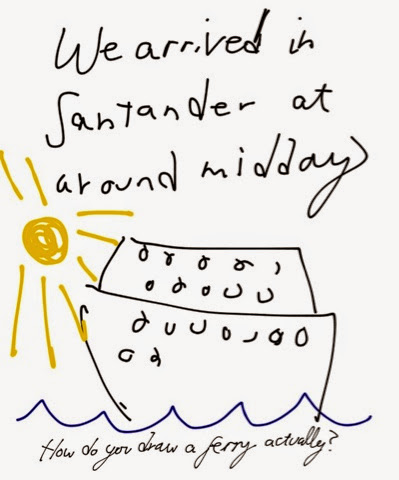 We arrived in
Santander at
around midday
How do you draw a ferry actually?